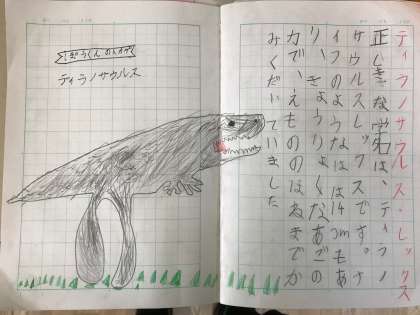 ぼうくん
ティラノサウルス
ティラノサウルス・レックス
正しきな は、ティラノ
サウルスレックスです。ナ
イフのようなはは14cmもあ
り、きょうりょくなあごの
力で、えもののほねまでか
みくだいていきました